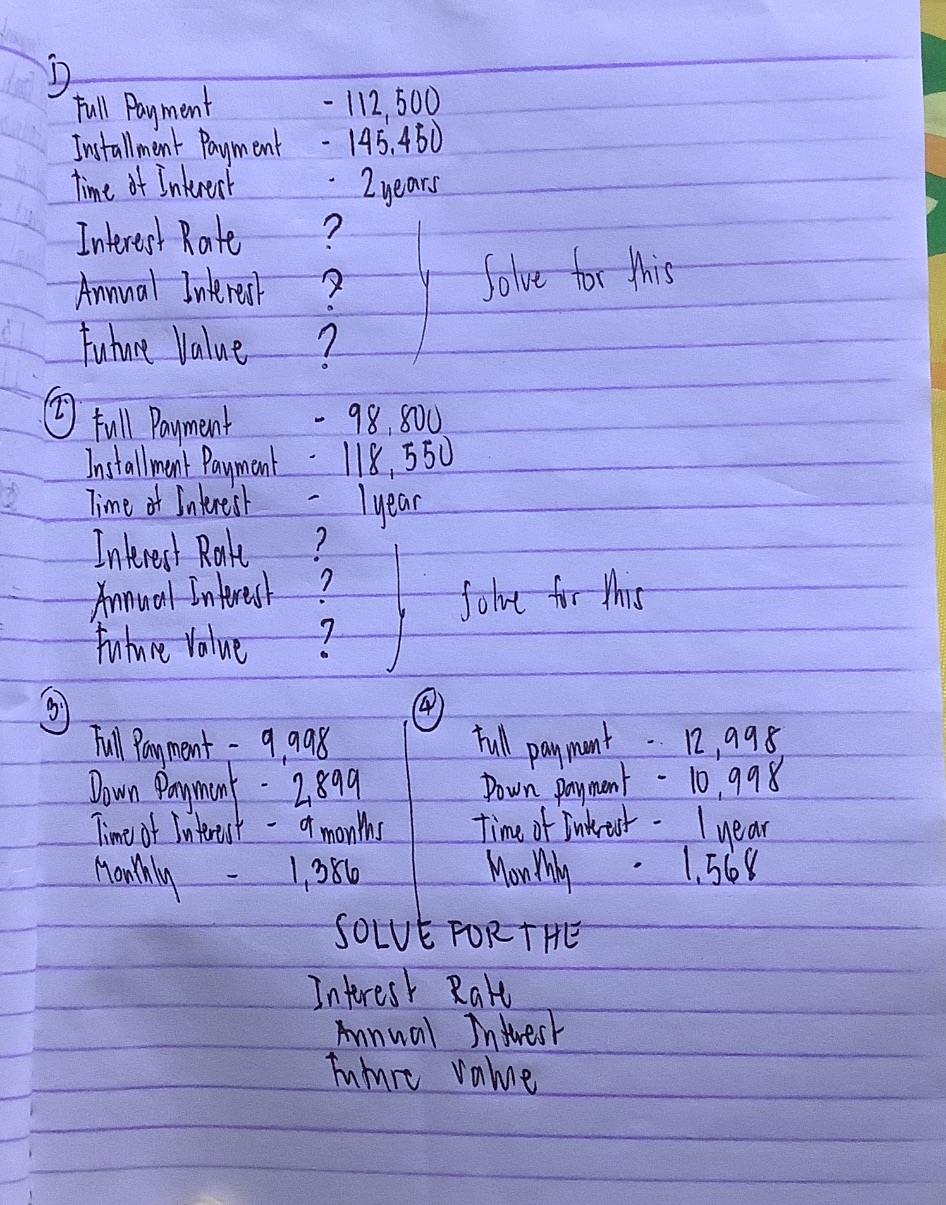 1)
Full Payment - 112,500
Installment Payment - 145,450
Time of Interest - 2 years
Interest Rate ?
Annual Interest ? Solve for this
Future Value ?
2.
Full Payment - 98,800
Installment Payment - 118,550
Time of Interest - 1 year
Interest Rate ?
Annual Interest ? Solve for this
Future Value ?
3.
Full Payment - 9,998
Down Payment - 2,899
Time of Interest - 9 months
Monthly - 1,386
4
Full payment - 12,998
Down payment - 10,998
Time of Interest - 1 year
Monthly - 1,568
SOLVE FOR THE
Interest Rate
Annual Interest
Future Value